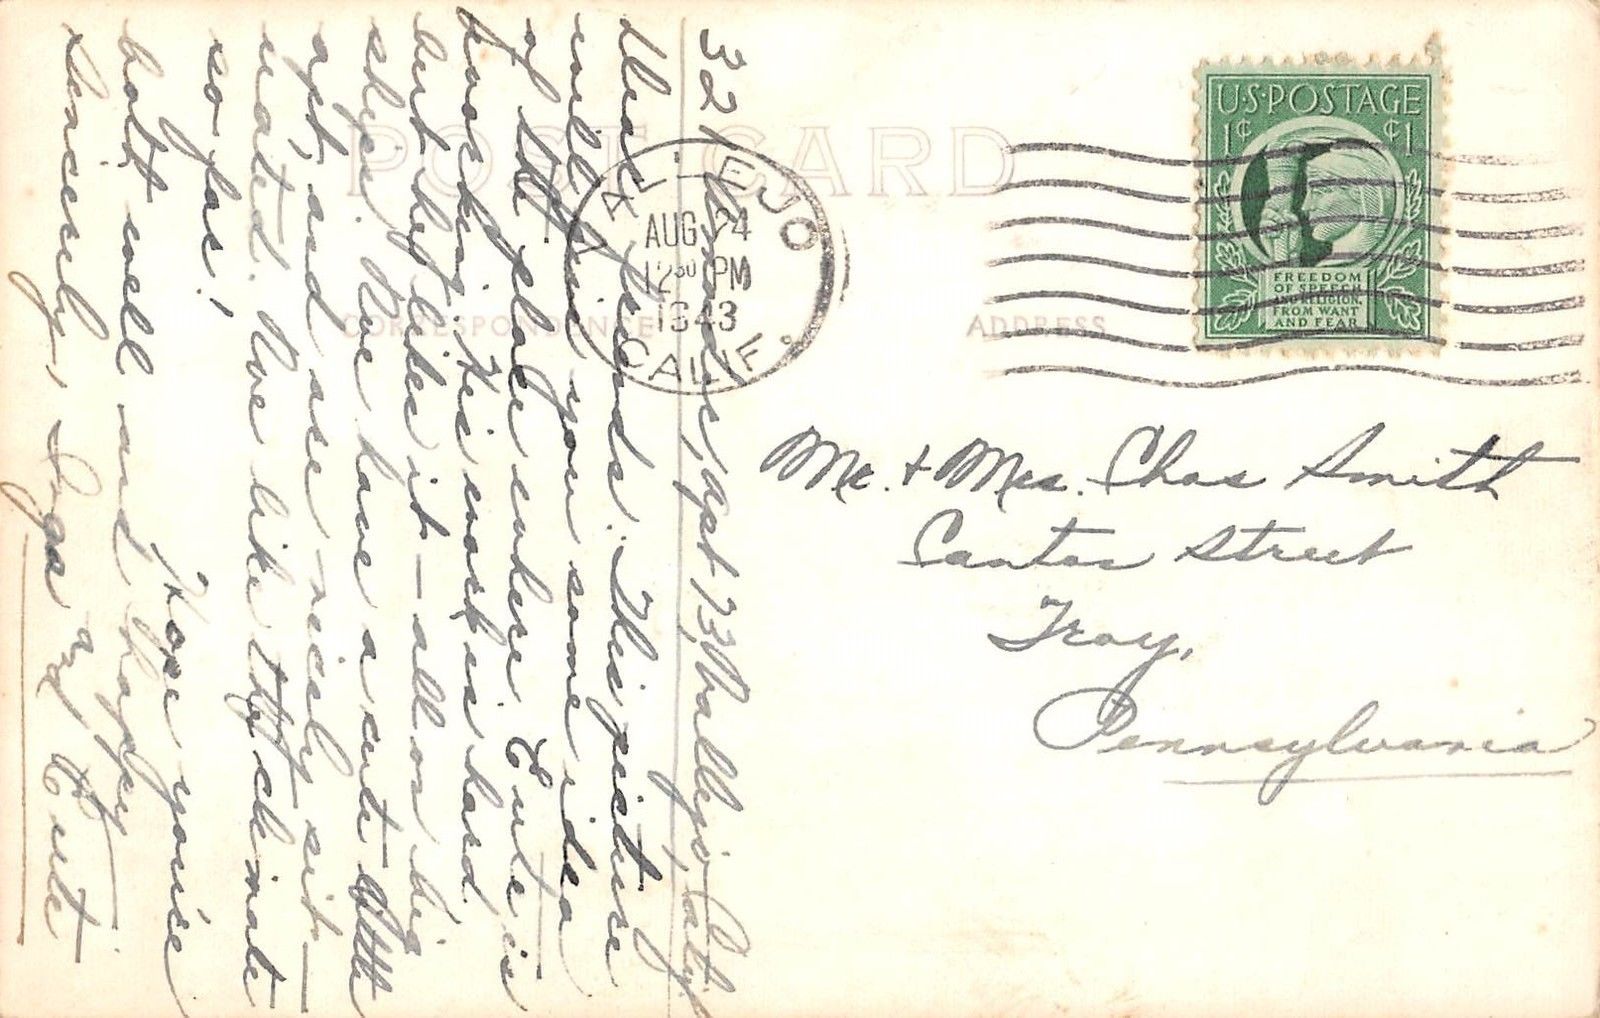 POST CARD
CORRESPONDENCE
ADDRESS
VALLEJO
AUG 24
12 30 PM
1943
CALIF.
U·S·POSTAGE
1¢ ¢1
FREEDOM
OF SPEECH
AND RELIGION,
FROM WANT
AND FEAR
Mr. + Mrs. Chas Smith
Canton Street
Troy,
Pennsylvania
321 apt 73, Vallejo, Calif
Dear friends. This picture
will give you some idea
of the place where Curt is
working. His work is hard
but he likes it — all on big
ships. We have a cute little
apt, and are nicely sit-
uated. We like the climate
so far!
Hope you're
both well and happy
Sincerely, Inga and Curt